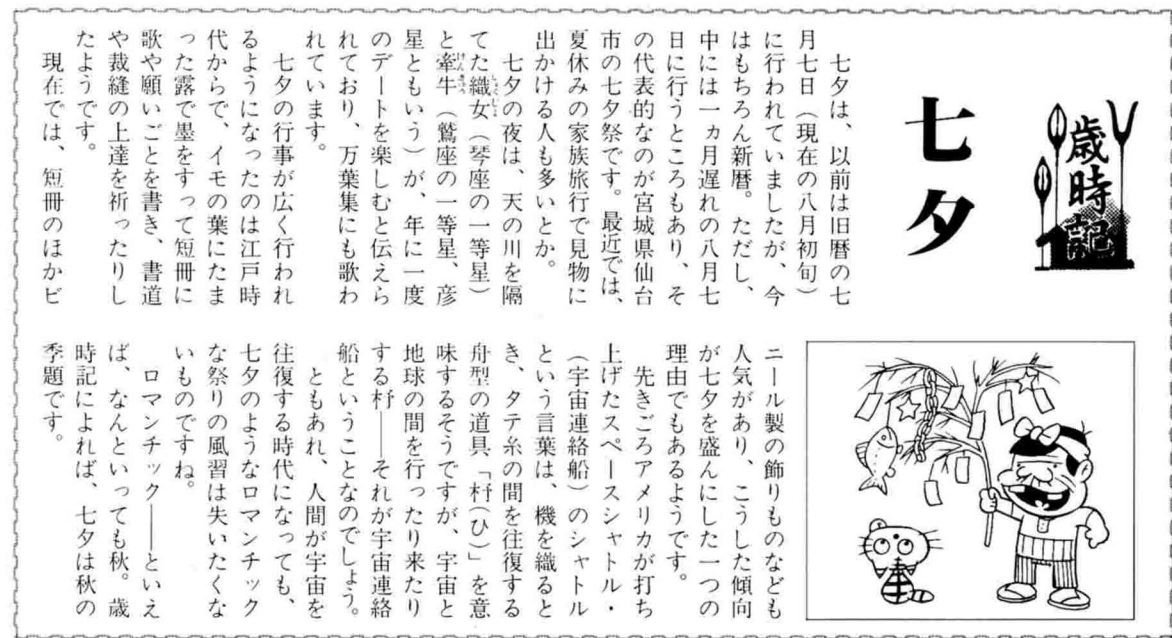 歳時記
七夕
七夕は、以前は旧暦の七
月七日（現在の八月初旬）
に行われていましたが、今
はもちろん新暦。ただし、
中には一ヵ月遅れの八月七
日に行うところもあり、そ
の代表的なのが宮城県仙台
市の七夕祭です。最近では、
夏休みの家族旅行で見物に
出かける人も多いとか。
七夕の夜は、天の川を隔
てた織女（琴座の一等星）
と牽牛（鷲座の一等星、彦
星ともいう）が、年に一度
のデートを楽しむと伝えら
れており、万葉集にも歌わ
れています。
七夕の行事が広く行われ
るようになったのは江戸時
代からで、イモの葉にたま
った露で墨をすって短冊に
歌や願いごとを書き、書道
や裁縫の上達を祈ったりし
たようです。
現在では、短冊のほかビ
ニール製の飾りものなども
人気があり、こうした傾向
が七夕を盛んにした一つの
理由でもあるようです。
先きごろアメリカが打ち
上げたスペースシャトル・
（宇宙連絡船）のシャトル
という言葉は、機を織ると
き、タテ糸の間を往復する
舟型の道具「杼（ひ）」を意
味するそうですが、宇宙と
地球の間を行ったり来たり
する杼——それが宇宙連絡
船ということなのでしょう。
ともあれ、人間が宇宙を
往復する時代になっても、
七夕のようなロマンチック
な祭りの風習は失いたくな
いものですね。
ロマンチック——といえ
ば、なんといっても秋。歳
時記によれば、七夕は秋の
季題です。